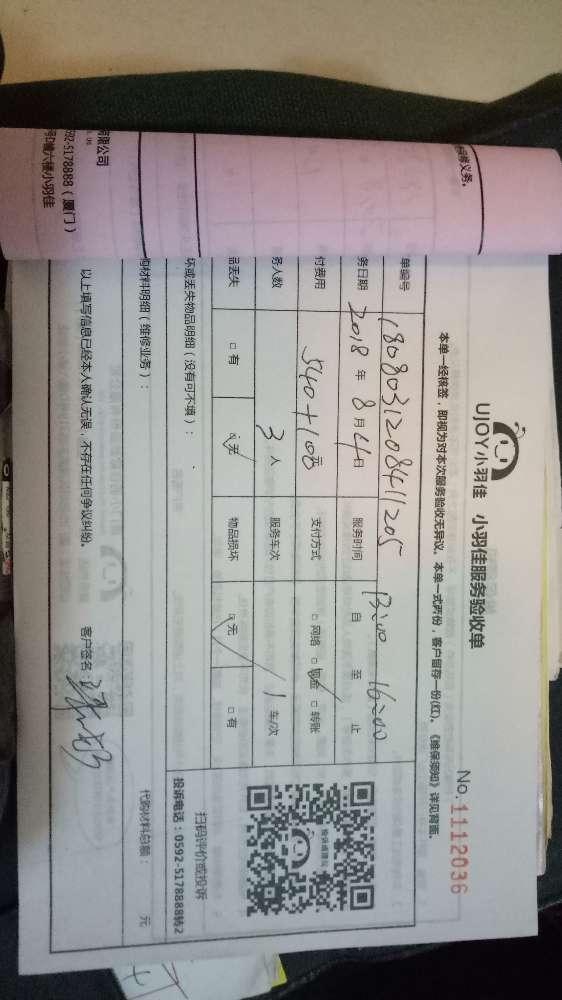 UJOY小羽佳 小羽佳服务验收单
No.1112036
本单一经核签，即视为对本次服务验收无异议。本单一式两份，客户留存一份(红)。《维保须知》详见背面。
单编号 180803120841205
务日期 2018年8月4日 服务时间 13:00 自 至 16:00 止
付费用 540+100元 支付方式 □网络 □现金 □转账
务人数 3人 服务车次 1车/次
品丢失 □有 □无 物品损坏 □无 □有
坏或丢失物品明细（没有可不填）：
购材料明细（维修业务）：
代购材料总额： 元
扫码评价或投诉
投诉电话：0592-5178888转2
以上填写信息已经本人确认无误，不存在任何争议纠纷。
客户签名：
维修义务。
有限公司
592-5178888（厦门）
六楼小羽佳